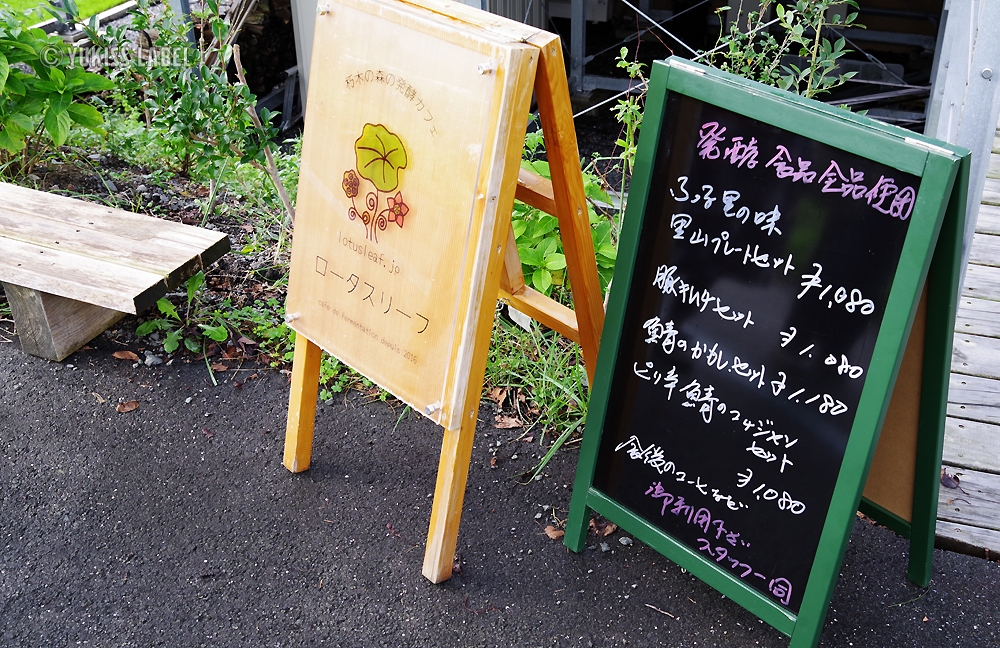 © YUKISS LABEL
朽木の森の発酵カフェ
lotusleaf.jp
ロータスリーフ
cafe de fermentation depuis 2016
発酵食品全品使用
ふる里の味
里山プレートセット ¥1,080
豚キムチセット
¥1.080
鯖のかかしセット ¥1.180
ピリ辛鯖のコチジャン
セット
¥1.080
食後のコーヒーなど
御利用下さい
スタッフ一同